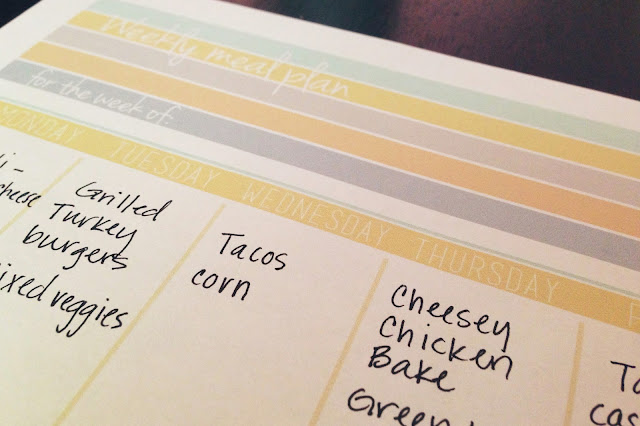 Weekly meal plan
for the week of:
MONDAY TUESDAY WEDNESDAY THURSDAY
cheese
Grilled
Turkey
burgers
veggies
Tacos
corn
Cheesey
Chicken
Bake
Green